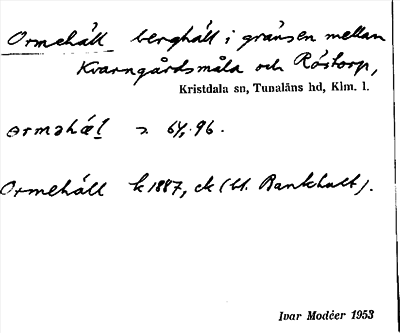 Ormehäll berghäll i gränsen mellan
Kvarngårdsmåla och Röstorp,
Kristdala sn, Tunaläns hd, Klm. l.
ərməhæl 96.
Ormehäll k 1887, ek (bl. Bankhult).
Ivar Modéer 1953